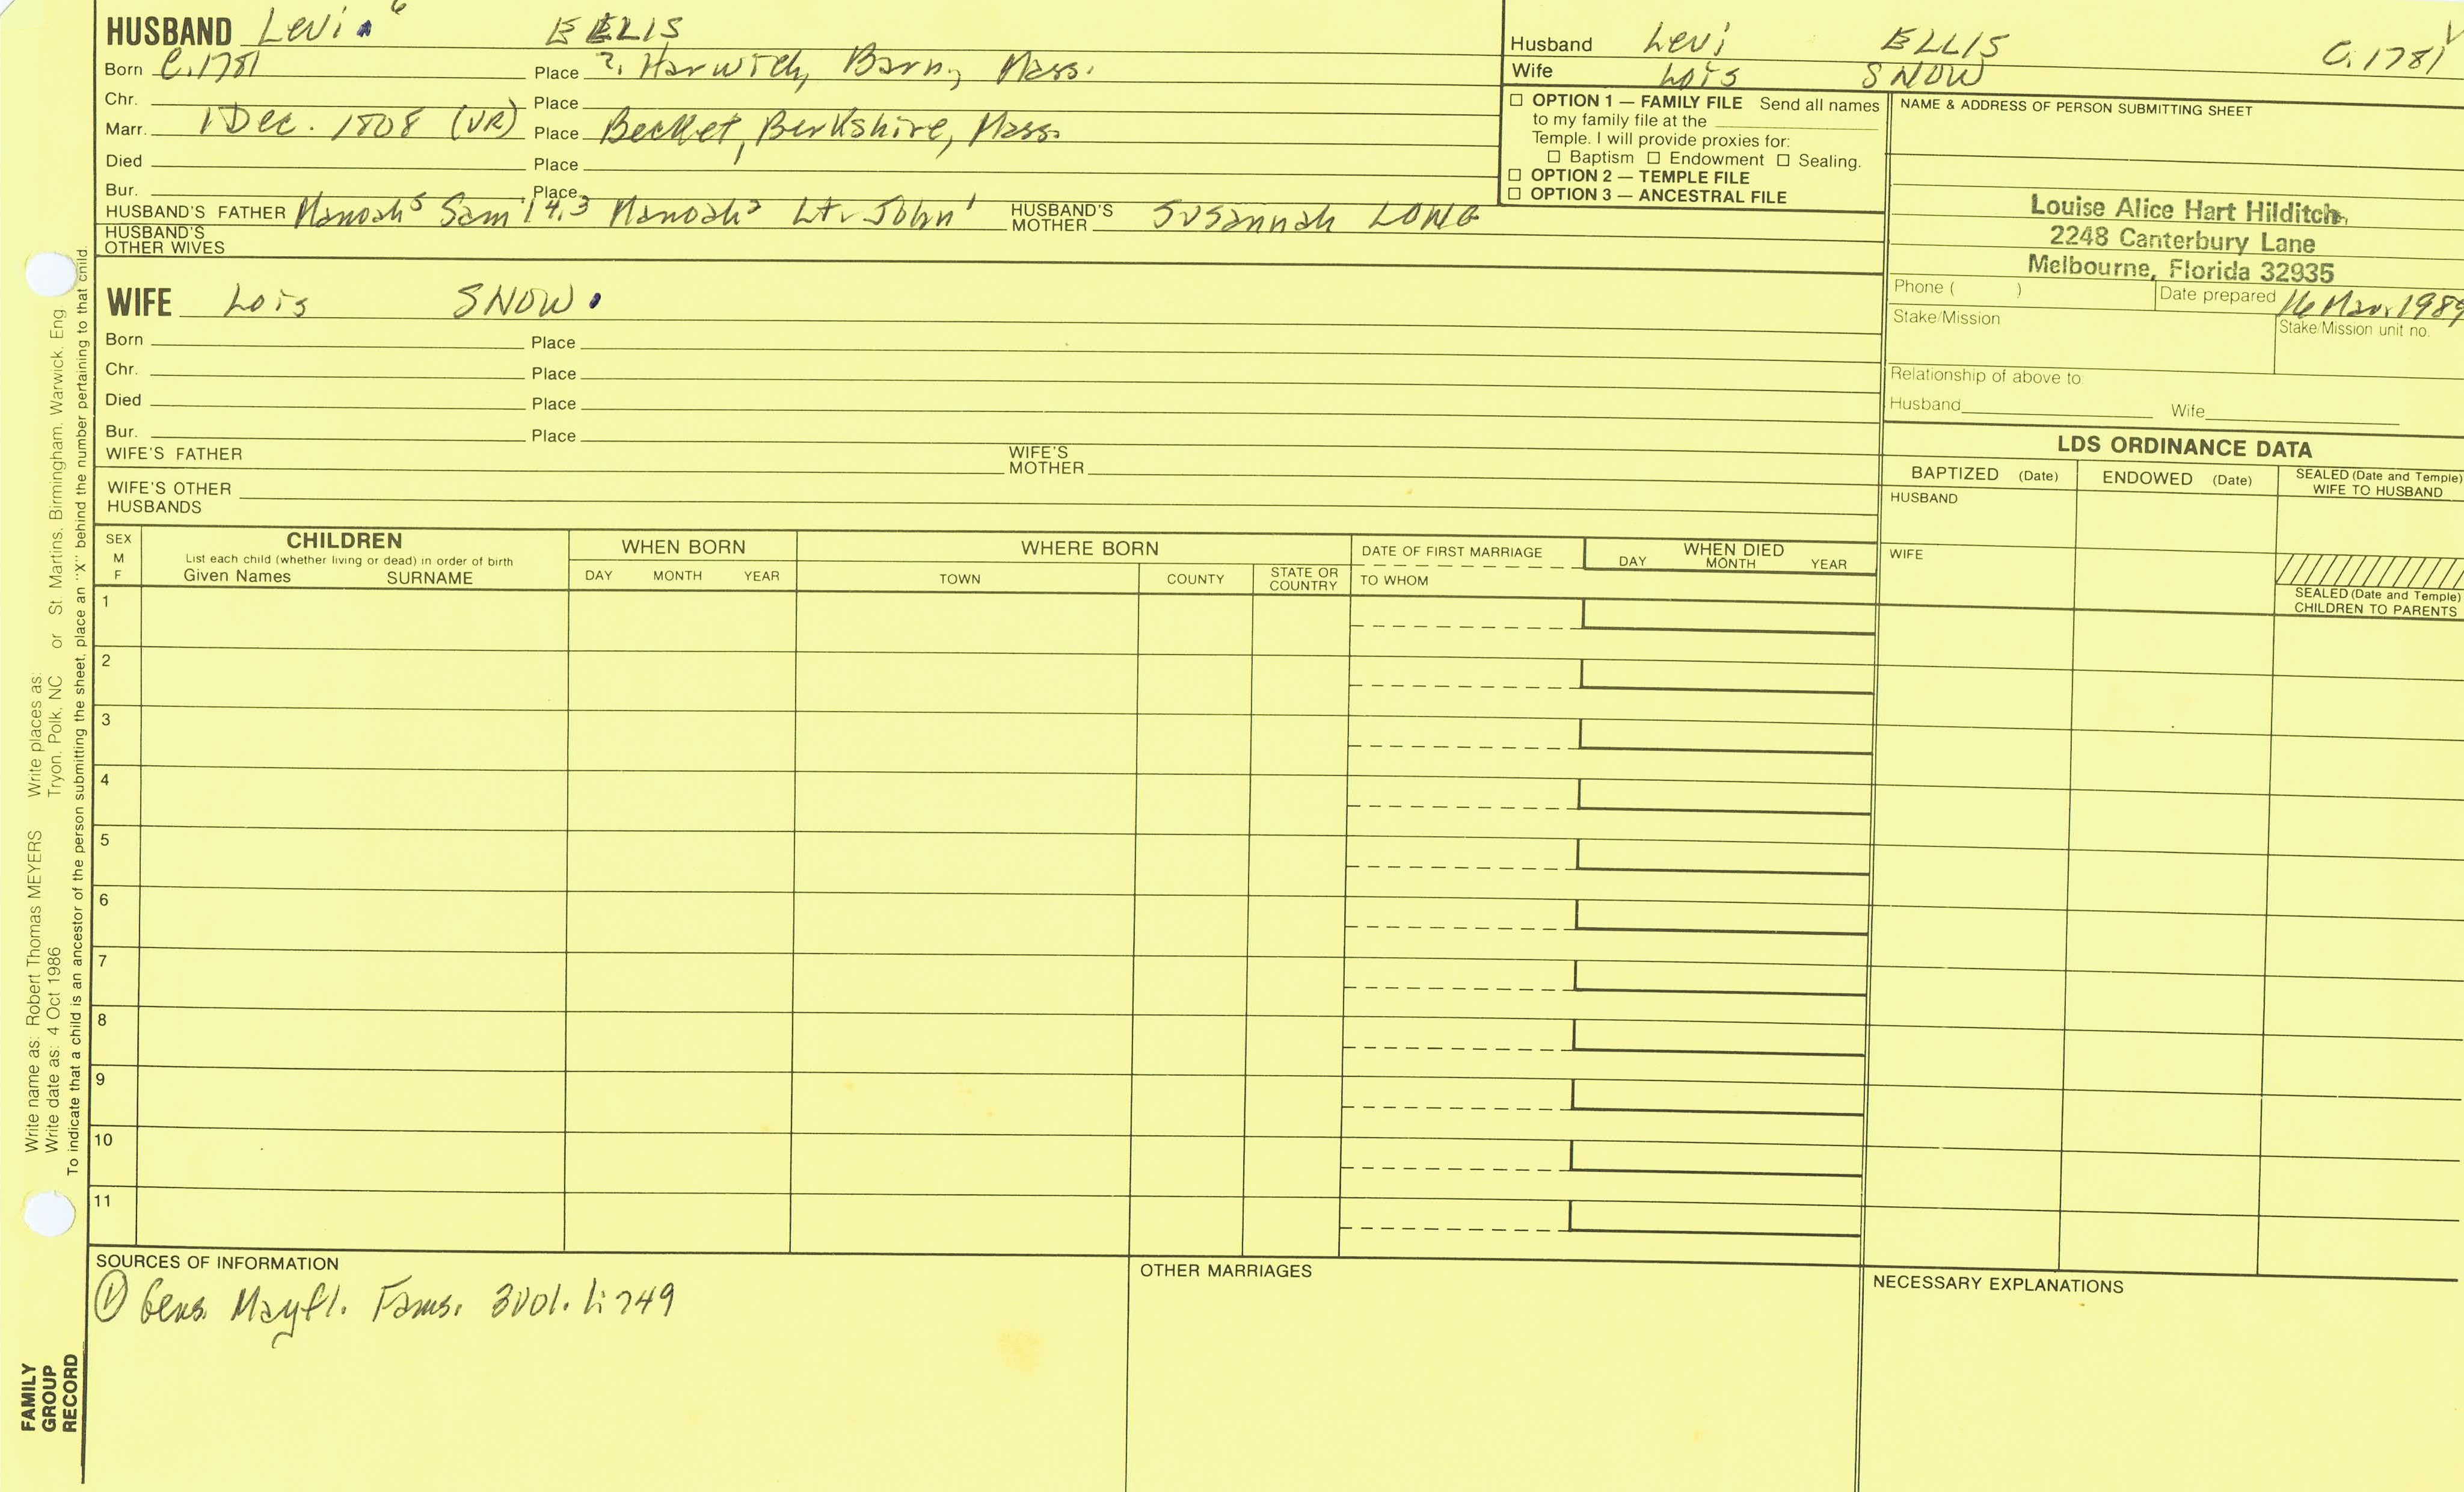 HUSBAND Levi 6 ELLIS
Born C.1781 Place ?. Harwich, Barn, Mass.
Chr. Place
Marr. 1 Dec. 1808 (VR) Place Becket, Berkshire, Mass.
Died Place
Bur. Place
HUSBAND'S FATHER Manoah5 Sam'l4,3 Manoah2 Lt. John1 HUSBAND'S MOTHER Susannah LONG
HUSBAND'S OTHER WIVES
WIFE Lois SNOW
Born Place
Chr. Place
Died Place
Bur. Place
WIFE'S FATHER WIFE'S MOTHER
WIFE'S OTHER HUSBANDS
Husband Levi ELLIS C.1781
Wife Lois SNOW
☐ OPTION 1 — FAMILY FILE Send all names
to my family file at the
Temple. I will provide proxies for:
☐ Baptism ☐ Endowment ☐ Sealing.
☐ OPTION 2 — TEMPLE FILE
☐ OPTION 3 — ANCESTRAL FILE
NAME & ADDRESS OF PERSON SUBMITTING SHEET
Louise Alice Hart Hilditch
2248 Canterbury Lane
Melbourne, Florida 32935
Phone ( ) Date prepared 16 Mar. 1989
Stake/Mission Stake/Mission unit no.
Relationship of above to
Husband Wife
LDS ORDINANCE DATA
BAPTIZED (Date) ENDOWED (Date) SEALED (Date and Temple) WIFE TO HUSBAND
HUSBAND
WIFE
SEALED (Date and Temple) CHILDREN TO PARENTS
SEX M F
CHILDREN
List each child (whether living or dead) in order of birth
Given Names SURNAME
WHEN BORN
DAY MONTH YEAR
WHERE BORN
TOWN COUNTY STATE OR COUNTRY
DATE OF FIRST MARRIAGE
TO WHOM
WHEN DIED
DAY MONTH YEAR
1
2
3
4
5
6
7
8
9
10
11
SOURCES OF INFORMATION
① Gens. Mayfl. Fams. 3 Vol. 1:749
OTHER MARRIAGES
NECESSARY EXPLANATIONS
Write name as: Robert Thomas MEYERS Write places as:
Write date as: 4 Oct 1986 Tryon, Polk, NC or St Martins, Birmingham, Warwick, Eng
To indicate that a child is an ancestor of the person submitting the sheet, place an "X" behind the number pertaining to that child.
FAMILY
GROUP
RECORD